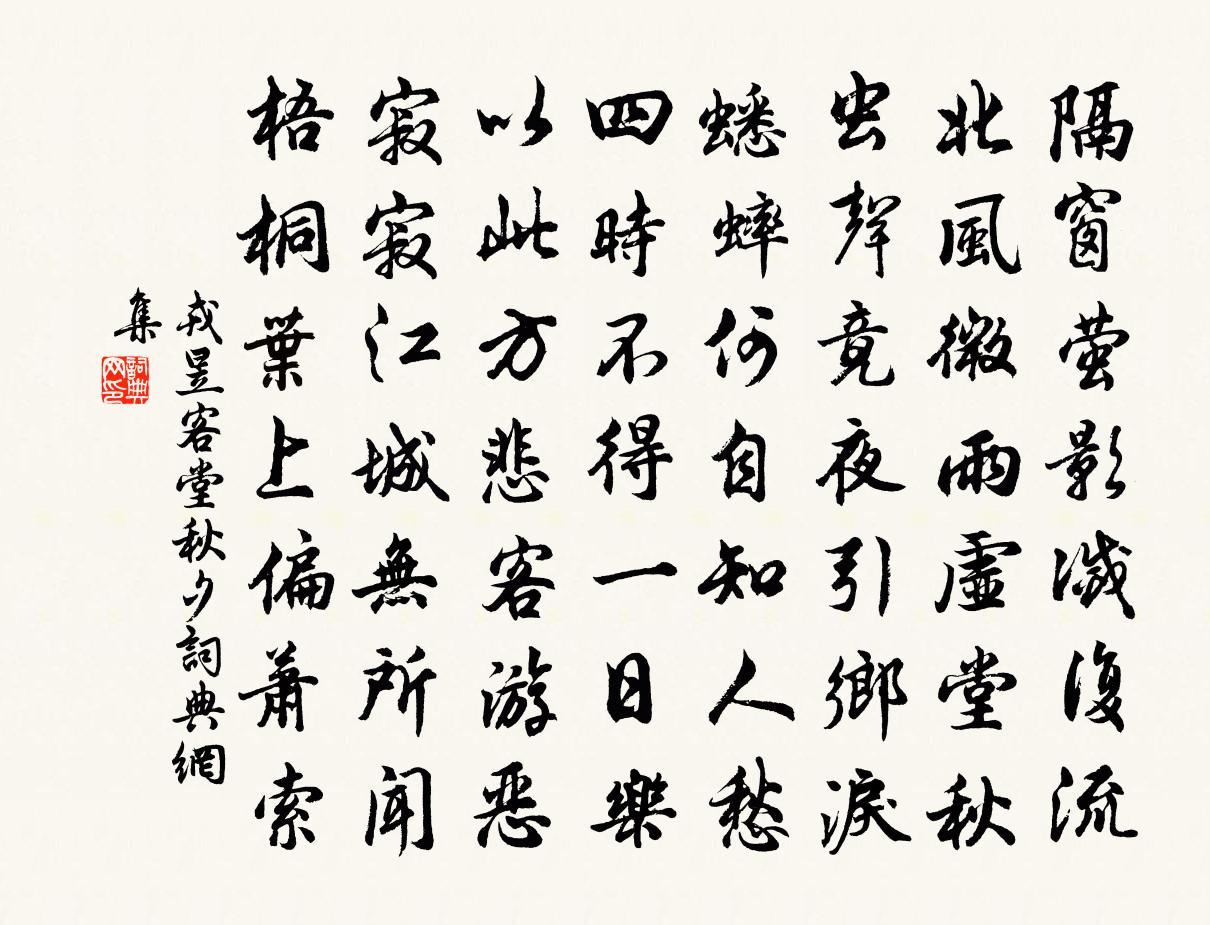 隔窗萤影滅復流
北風微雨虛堂秋
虫聲竟夜引鄉淚
蟋蟀何自知人愁
四時不得一日樂
以此方悲客游恶
寂寂江城無所聞
梧桐葉上偏蕭索
戎昱客堂秋夕詞典網
集
詞典
网印